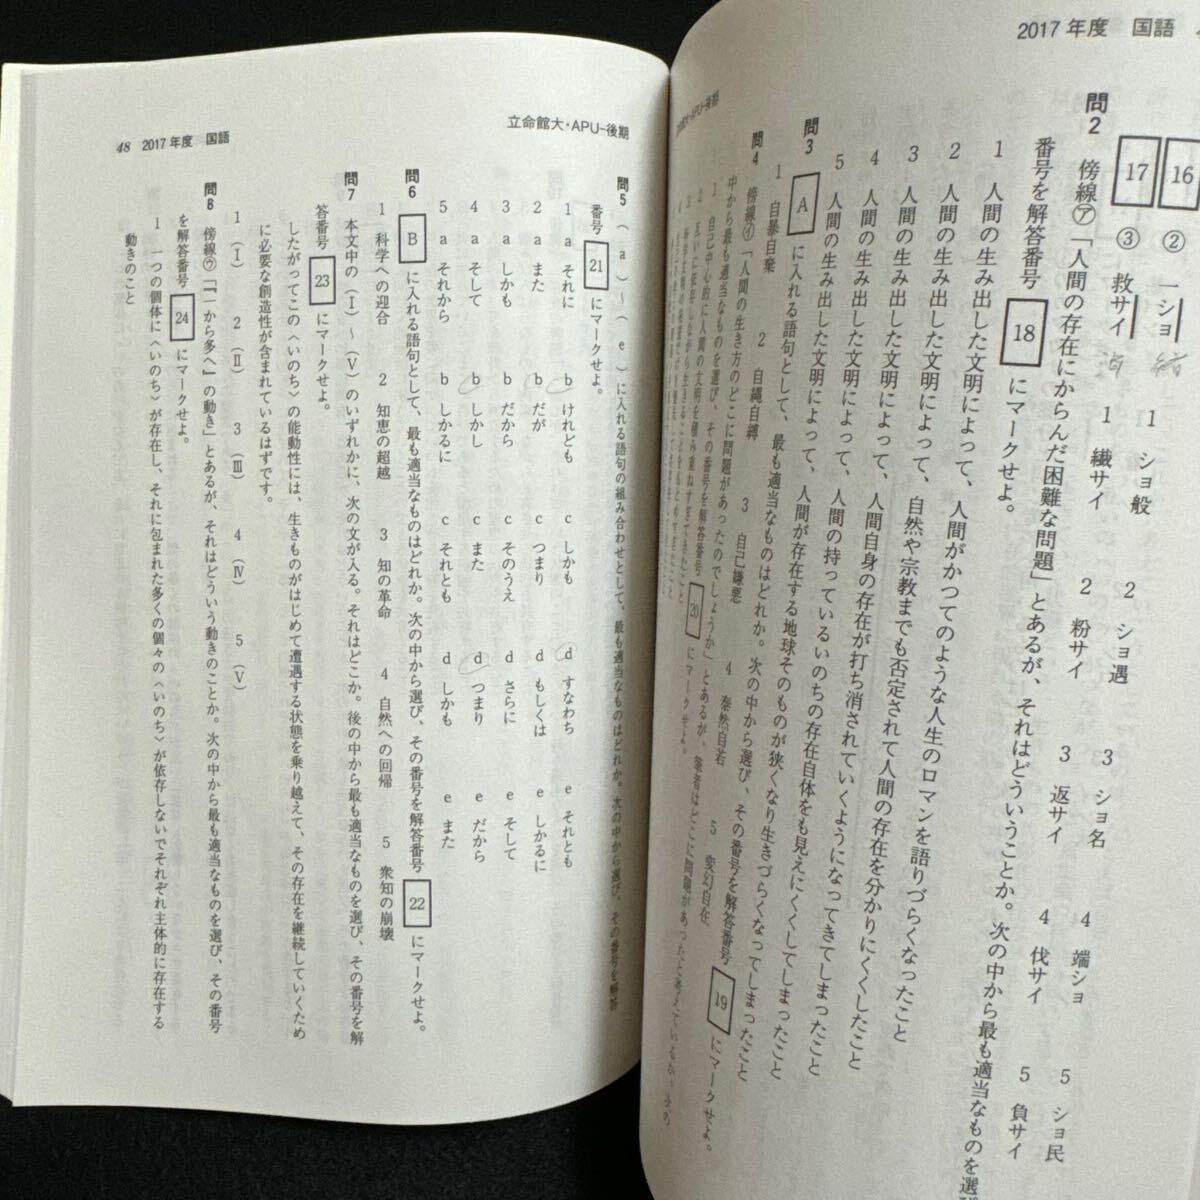 2017年度 国語
16 ② 一ショ 1 ショ般 2 ショ遇 3 ショ名 4 端ショ 5 ショ民
17 ③ 救サイ 1 繊サイ 2 粉サイ 3 返サイ 4 伐サイ 5 負サイ
問2 傍線㋐「人間の存在にからんだ困難な問題」とあるが、それはどういうことか。次の中から最も適当なものを選
番号を解答番号 18 にマークせよ。
1 人間の生み出した文明によって、人間がかつてのような人生のロマンを語りづらくなったこと
2 人間の生み出した文明によって、自然や宗教までも否定されて人間の存在を分かりにくくしたこと
3 人間の生み出した文明によって、人間自身の存在が打ち消されていくようになってきてしまったこと
4 人間の生み出した文明によって、人間の持っているいのちの存在自体をも見えにくくしてしまったこと
5 人間の生み出した文明によって、人間が存在する地球そのものが狭くなり生きづらくなってしまったこと
問3 A に入れる語句として、最も適当なものはどれか。次の中から選び、その番号を解答番号 19 にマークせよ。
1 自暴自棄 2 自縄自縛 3 自己嫌悪 4 泰然自若 5 変幻自在
問4 傍線㋑「人間の生き方のどこに問題があったのでしょうか」とあるが、筆者はどこに問題があったと考えているか。次の
中から最も適当なものを選び、その番号を解答番号 20 にマークせよ。
立命館大・APU-後期
48 2017年度 国語
立命館大・APU-後期
問5 (a)～(e)に入れる語句の組み合わせとして、最も適当なものはどれか。次の中から選び、その番号を解答
番号 21 にマークせよ。
1 a それに b けれども c しかも d すなわち e それとも
2 a また b だが c つまり d もしくは e しかるに
3 a しかも b だから c そのうえ d さらに e そして
4 a そして b しかし c また d つまり e だから
5 a それから b しかるに c それとも d しかも e また
問6 B に入れる語句として、最も適当なものはどれか。次の中から選び、その番号を解答番号 22 にマークせよ。
1 科学への迎合 2 知恵の超越 3 知の革命 4 自然への回帰 5 衆知の崩壊
問7 本文中の(Ⅰ)～(Ⅴ)のいずれかに、次の文が入る。それはどこか。後の中から最も適当なものを選び、その番号を解
答番号 23 にマークせよ。
したがってこの〈いのち〉の能動性には、生きものがはじめて遭遇する状態を乗り越えて、その存在を継続していくため
に必要な創造性が含まれているはずです。
1 (Ⅰ) 2 (Ⅱ) 3 (Ⅲ) 4 (Ⅳ) 5 (Ⅴ)
問8 傍線㋒「『一から多へ』の動き」とあるが、それはどういう動きのことか。次の中から最も適当なものを選び、その番号
を解答番号 24 にマークせよ。
1 一つの個体に〈いのち〉が存在し、それに包まれた多くの個々の〈いのち〉が依存しないでそれぞれ主体的に存在する
動きのこと